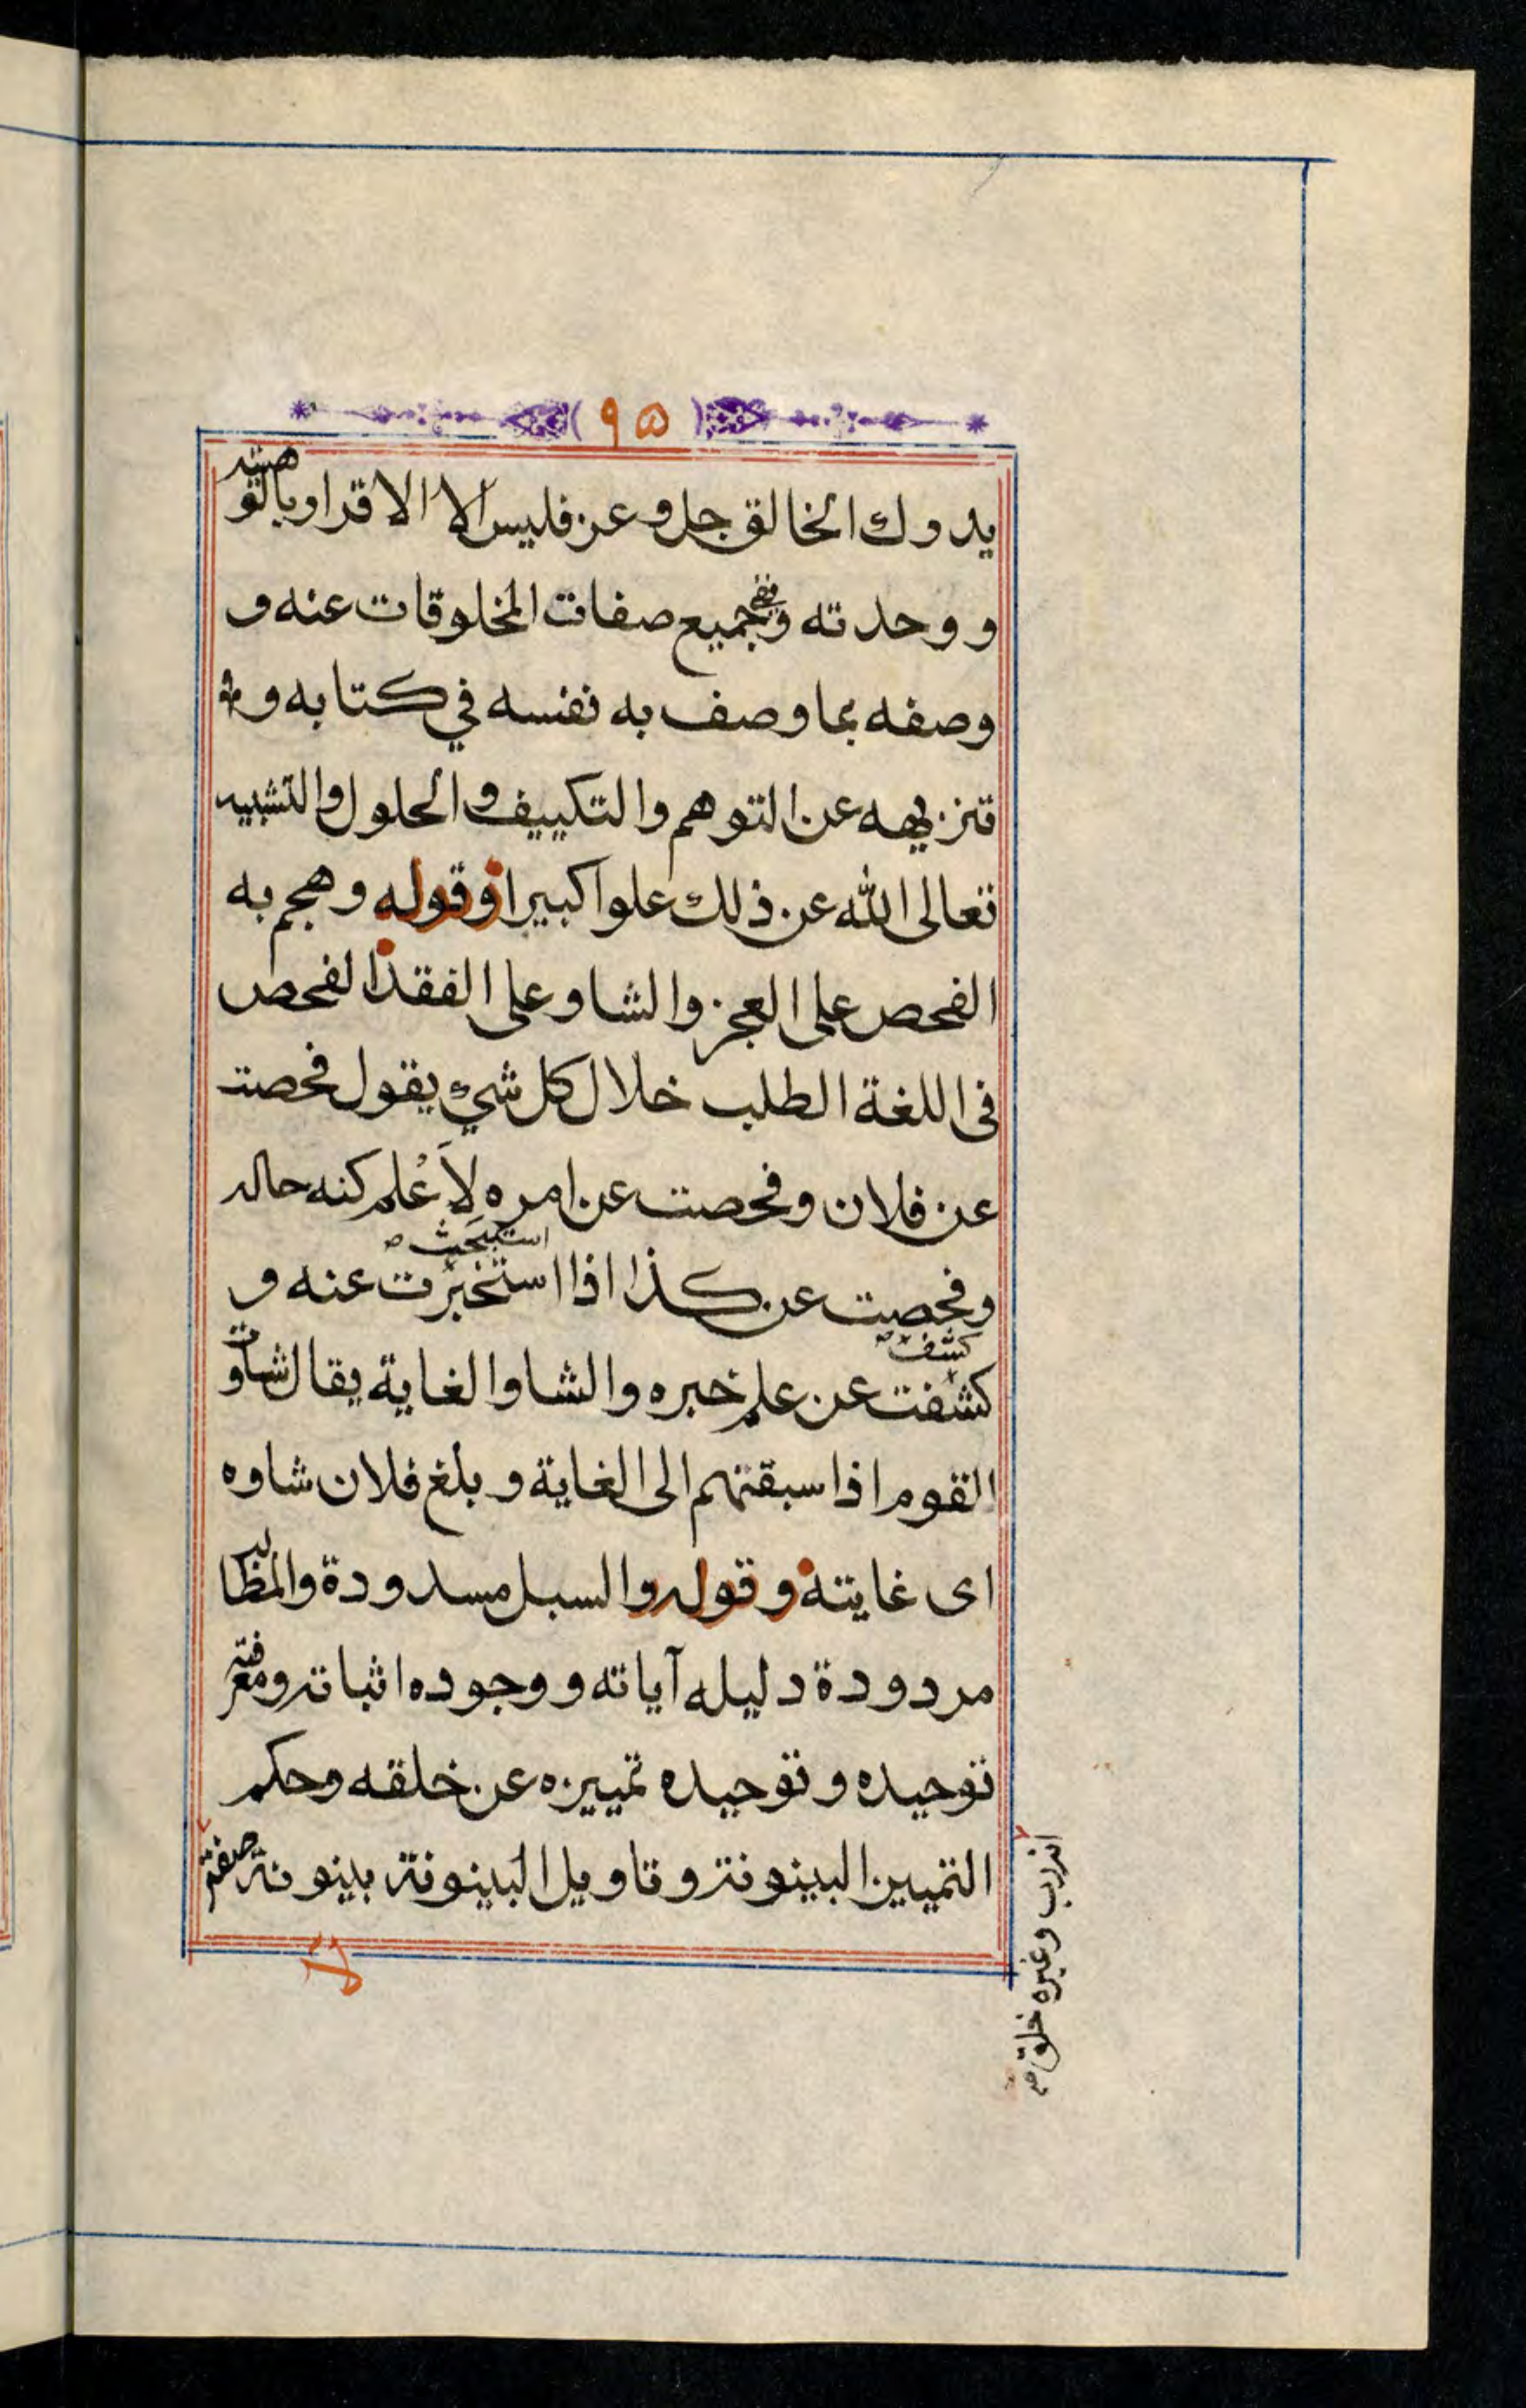 ٩٥
يدرك الخالق جل وعز فليس الا الاقرار بالوهيته
ووحدته ونفي جميع صفات المخلوقات عنه و
وصفه بما وصف به نفسه في كتابه و
تنزيهه عن التوهم والتكييف والحلول والتشبيه
تعالى الله عن ذلك علوا كبيرا وقوله وهجم به
الفحص على العجز والشاو على الفقد الفحص
في اللغة الطلب خلال كل شيء يقول فحصت
عن فلان وفحصت عن امره لاَعْلم كنه حاله
استبحثت ص
وفحصت عن كذا اذا استخبرت عنه و
كشف ص
كشفت عن علم خبره والشاو الغاية يقال شاوت
القوم اذا سبقتهم الى الغاية وبلغ فلان شاوه
اى غايته وقوله والسبل مسدودة والمطالب
مردودة دليله آياته ووجوده اثباته ومعرفته
توحيده وتوحيده تمييزه عن خلقه وحكم
التمييز البينونة وتاويل البينونة بينونة صفة
لا
انه رب وغيره خلق صح